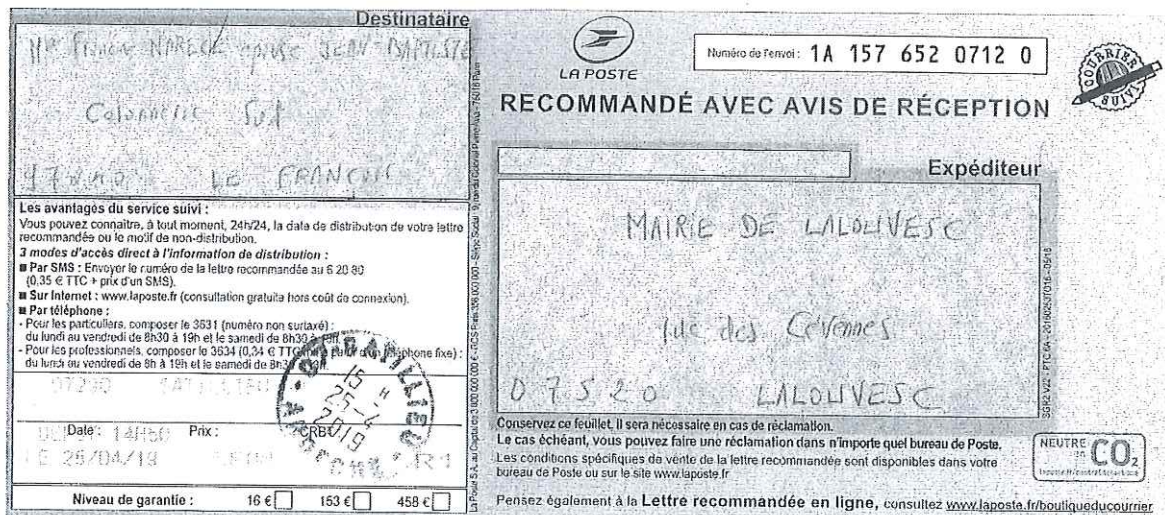 Destinataire
Mme NARECE épouse JEAN-BAPTISTE
Sud
97240 LE FRANÇOIS
Les avantages du service suivi :
Vous pouvez connaître, à tout moment, 24h/24, la date de distribution de votre lettre
recommandée ou le motif de non-distribution.
3 modes d'accès direct à l'information de distribution :
■ Par SMS : Envoyer le numéro de la lettre recommandée au 6 20 80
(0,35 € TTC + prix d'un SMS).
■ Sur Internet : www.laposte.fr (consultation gratuite hors coût de connexion).
■ Par téléphone :
- Pour les particuliers, composer le 3631 (numéro non surtaxé) :
du lundi au vendredi de 8h30 à 19h et le samedi de 8h30 à
- Pour les professionnels, composer le 3634 (0,34 € TTC à partir d'un téléphone fixe) :
du lundi au vendredi de 8h à 19h et le samedi de 8h30
15 H
25-4
2019
ARDECHE
Date : 14H50 Prix : CRBT
25/04/19
Niveau de garantie : 16 € 153 € 458 €
LA POSTE
Numéro de l'envoi : 1A 157 652 0712 0
COURRIER
SUIVI
RECOMMANDÉ AVEC AVIS DE RÉCEPTION
Expéditeur
MAIRIE DE LALOUVESC
rue des Cévennes
07520 LALOUVESC
SGR2 V22 - PTC 6A
Conservez ce feuillet, il sera nécessaire en cas de réclamation.
Le cas échéant, vous pouvez faire une réclamation dans n'importe quel bureau de Poste.
Les conditions spécifiques de vente de la lettre recommandée sont disponibles dans votre
bureau de Poste ou sur le site www.laposte.fr
NEUTRE
en
CO2
Pensez également à la Lettre recommandée en ligne, consultez www.laposte.fr/boutiqueducourrier